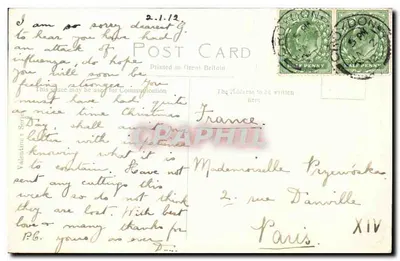 2.1.12
I am so sorry dearest G.
to hear you have had
an attack of
influenza, do hope
you will soon be
feeling stronger. You
must have had quite
a nice time Christmas
Day shall await
letter with
knowing what it is
to contain. Have not
sent any cuttings this
week so do not think
they are lost. With best
love & many thanks for
P.C. yours as ever
POST CARD
Printed in Great Britain
This space may be used for Communication
The Address to be written
here
Valentine's Series
CROYDON
HALFPENNY
CROYDON
HALFPENNY
France.
CPARAMA
Mademoiselle Przewóska
2 rue Danville
Paris.
XIV